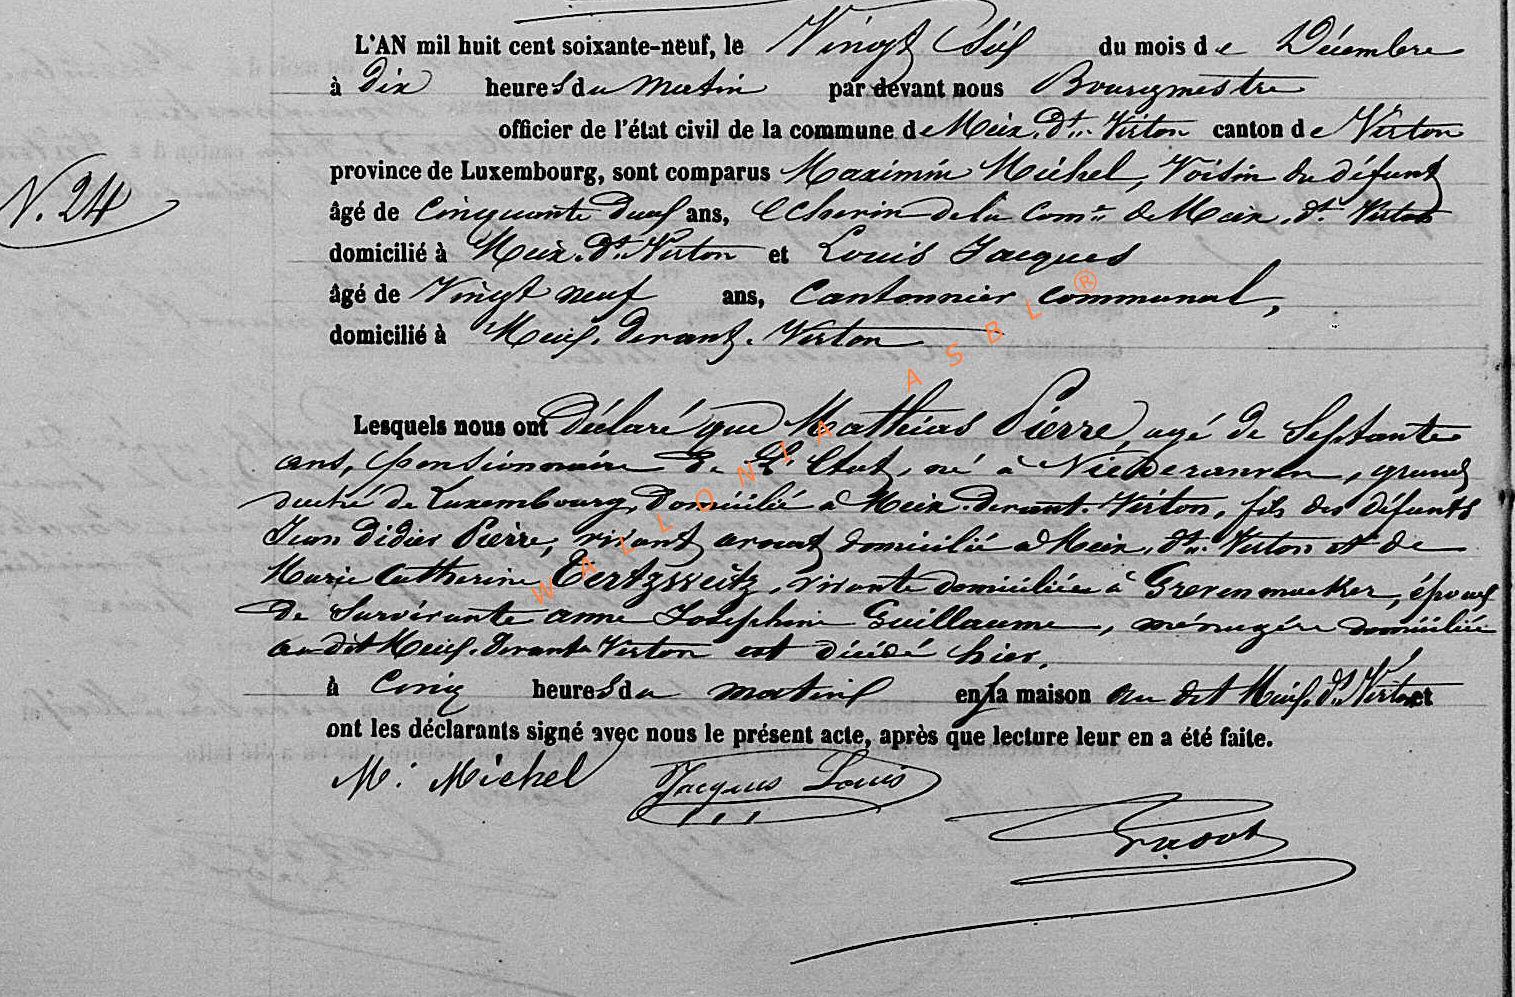 L'AN mil huit cent soixante-neuf, le Vingt Six du mois de Décembre
à dix heures du matin par devant nous Bourgmestre
officier de l'état civil de la commune de Meix. Dt. Virton canton de Virton
N. 24
province de Luxembourg, sont comparus Maximin Michel, Voisin du défunt
âgé de Cinquante deux ans, Echevin de la Comne de Meix. dt. Virton
domicilié à Meix. Dt. Virton et Louis Jacques
âgé de Vingt neuf ans, Cantonnier communal,
domicilié à Meix. devant. Virton
Lesquels nous ont Déclaré que Mathias Pierre, agé de Septante
ans, pensionnaire de L'Etat, né à Niederanven, grand
duché de Luxembourg, Domicilié à Meix. devant. Virton, fils des défunts
Jean Didier Pierre, vivant avocat domicilié à Meix. dt. Virton et de
Marie Catherine vivante domiciliée à Grevenmacker, époux
de Survivante anne Joséphine Guillaume, ménagère domiciliée
au dit Meix. devant Virton est décédé hier.
à Cinq heures du matin en sa maison au dit Meix. dt. Virton et
ont les déclarants signé avec nous le présent acte, après que lecture leur en a été faite.
M. Michel Jacques Louis
WALLONIA ASBL ®